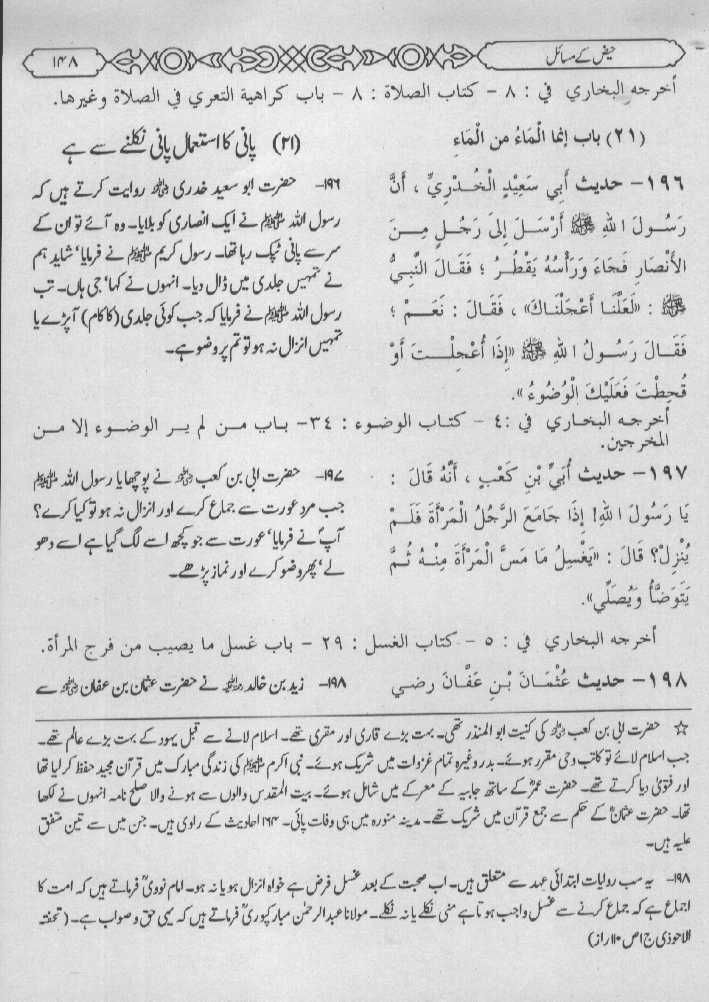 حیض کے مسائل
۱۴۸
أخرجه البخاري في : ٨ - كتاب الصلاة : ٨ - باب كراهية التعري في الصلاة وغيرها.
(٢١) باب إنما الْمَاءُ من الْمَاءِ
١٩٦- حديث أَبِي سَعِيْدٍ الْخُدْرِيِّ ، أَنَّ
رَسُولَ اللهِ ﷺ أَرْسَلَ إِلَى رَجُلٍ مِـنَ
الأَنْصَارِ فَجَاءَ وَرَأْسُهُ يَقْطُرُ ؛ فَقَالَ النَّبِيُّ
ﷺ : «لَعَلَّنَا أَعْجَلْنَاكَ» ، فَقَالَ : نَعَمْ ؛
فَقَالَ رَسُولُ اللهِ ﷺ «إِذَا أُعْجِلْتَ أَوْ
قُحِطْتَ فَعَلَيْكَ الْوُضُوءُ».
(۲۱) پانی کا استعمال پانی نکلنے سے ہے
۱۹۶- حضرت ابو سعید خدری رضی اللہ عنہ روایت کرتے ہیں کہ
رسول اللہ ﷺ نے ایک انصاری کو بلایا۔ وہ آئے تو ان کے
سر سے پانی ٹپک رہا تھا۔ رسول کریم ﷺ نے فرمایا‘ شاید ہم
نے تمہیں جلدی میں ڈال دیا۔ انہوں نے کہا‘ جی ہاں۔ تب
رسول اللہ ﷺ نے فرمایا کہ جب کوئی جلدی (کا کام) آپڑے یا
تمہیں انزال نہ ہو تو تم پر وضو ہے۔
أخرجه البخاري في :٤ - كتاب الوضوء : ٣٤- باب من لم ير الوضوء إلا من
المخرجين.
١٩٧- حديث أُبَيِّ بْنِ كَعْبٍ ، أَنَّهُ قَالَ :
يَا رَسُولَ اللهِ! إِذَا جَامَعَ الرَّجُلُ الْمَرْأَةَ فَلَـمْ
يُنْزِلْ؟ قَالَ : «يَغْسِلُ مَا مَسَّ الْمَرْأَةَ مِنْـهُ ثُـمَّ
يَتَوَضَّأُ وَيُصَلِّي».
۱۹۷- حضرت ابی بن کعب رضی اللہ عنہ نے پوچھا یا رسول اللہ ﷺ
جب مرد عورت سے جماع کرے اور انزال نہ ہو تو کیا کرے؟
آپؐ نے فرمایا‘ عورت سے جو کچھ اسے لگ گیا ہے اسے دھو
لے‘ پھر وضو کرے اور نماز پڑھے۔
أخرجه البخاري في : ٥ - كتاب الغسل : ٢٩ - باب غسل ما يصيب من فرج المرأة.
١٩٨- حديث عُثْمَـانَ بْنِ عَفَّانَ رضـي
۱۹۸- زید بن خالد رضی اللہ عنہ نے حضرت عثمان بن عفان رضی اللہ عنہ سے
☆ حضرت ابی بن کعب رضی اللہ عنہ کی کنیت ابو المنذر تھی۔ بہت بڑے قاری اور مقری تھے۔ اسلام لانے سے قبل یہود کے بہت بڑے عالم تھے۔
جب اسلام لائے تو کاتب وحی مقرر ہوئے۔ بدر وغیرہ تمام غزوات میں شریک ہوئے۔ نبی اکرم ﷺ کی زندگی مبارک میں قرآن مجید حفظ کر لیا تھا
اور فتویٰ دیا کرتے تھے۔ حضرت عمرؓ کے ساتھ جابیہ کے معرکے میں شامل ہوئے۔ بیت المقدس والوں سے ہونے والا صلح نامہ انہوں نے لکھا
تھا۔ حضرت عثمانؓ کے حکم سے جمع قرآن میں شریک تھے۔ مدینہ منورہ میں ہی وفات پائی۔ ۱۶۴ احادیث کے راوی ہیں۔ جن میں سے تین متفق
علیہ ہیں۔
۱۹۸- یہ سب روایات ابتدائی عہد سے متعلق ہیں۔ اب صحبت کے بعد غسل فرض ہے خواہ انزال ہو یا نہ ہو۔ امام نوویؒ فرماتے ہیں کہ امت کا
اجماع ہے کہ جماع کرنے سے غسل واجب ہوتا ہے منی نکلے یا نہ نکلے۔ مولانا عبدالرحمٰن مبارکپوریؒ فرماتے ہیں کہ یہی حق و صواب ہے۔ (تحفتہ
الاحوذی ج ا ص ۱۱۰ راز)